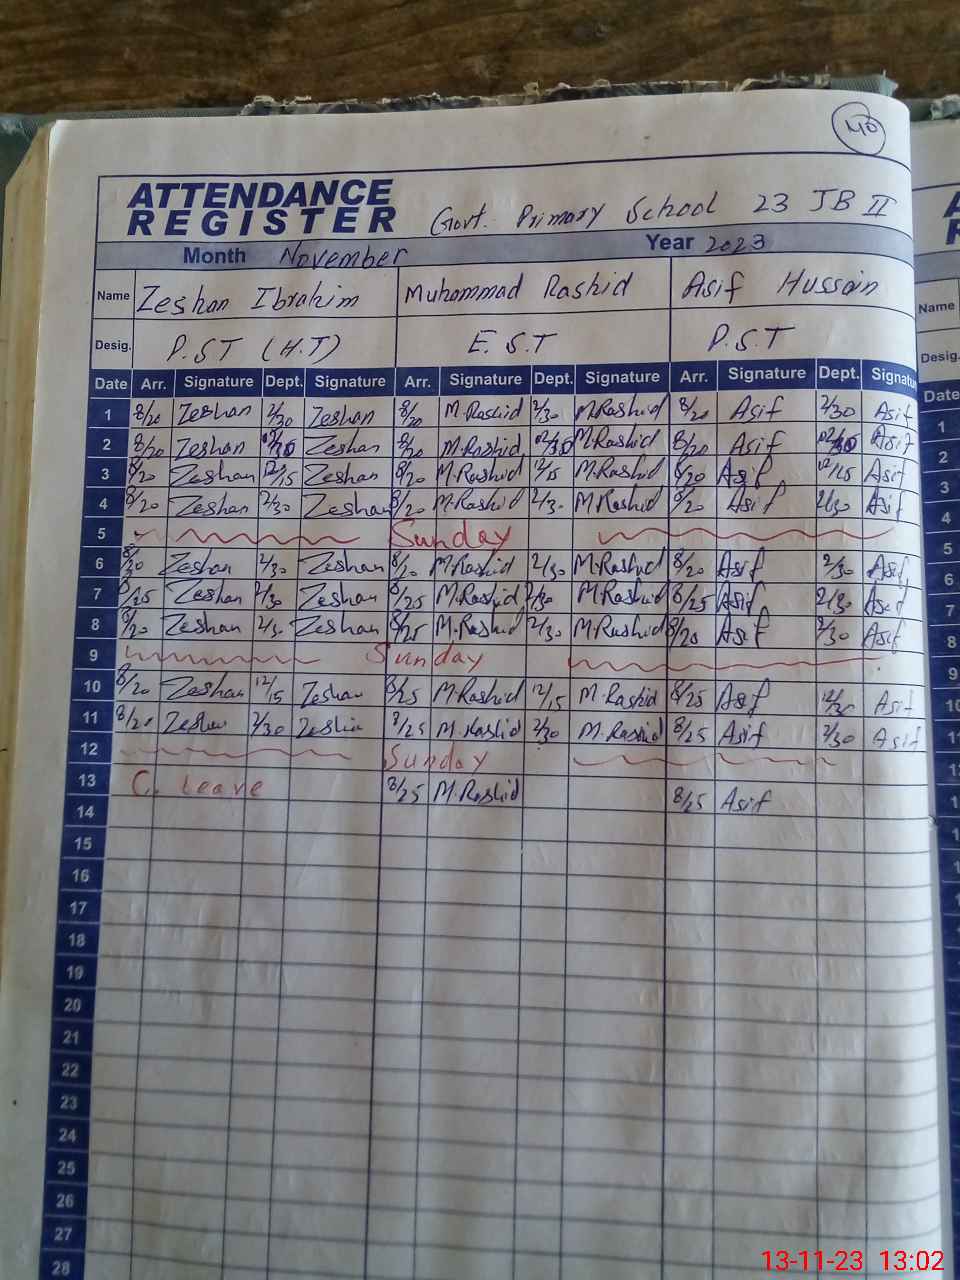 140
ATTENDANCE
REGISTER Govt. Primary School 23 JB II
Month November Year 2023
Name Zeshan Ibrahim Muhammad Rashid Asif Hussain
Desig. P.ST (H.T) E.S.T P.S.T
Date Arr. Signature Dept. Signature Arr. Signature Dept. Signature Arr. Signature Dept. Signatu
1 8/20 Zeshan 2/30 Zeshan 8/20 M.Rashid 2/30 M.Rashid 8/20 Asif 2/30 Asif
2 8/20 Zeshan 02/30 Zeshan 8/20 M.Rashid 02/30 M.Rashid 8/20 Asif 02/30 Asif
3 8/20 Zeshan 12/15 Zeshan 8/20 M.Rashid 12/15 M.Rashid 8/20 Asif 12/15 Asif
4 8/20 Zeshan 2/30 Zeshan 8/20 M.Rashid 2/30 M.Rashid 8/20 Asif 2/30 Asif
5 Sunday
6 8/20 Zeshan 2/30 Zeshan 8/20 M.Rashid 2/30 M.Rashid 8/20 Asif 2/30 Asif
7 8/25 Zeshan 2/30 Zeshan 8/25 M.Rashid 2/30 M.Rashid 8/25 Asif 2/30 Asif
8 8/20 Zeshan 2/30 Zeshan 8/25 M.Rashid 2/30 M.Rashid 8/25 Asif 2/30 Asif
9 Sunday
10 8/20 Zeshan 12/15 Zeshan 8/25 M.Rashid 12/15 M.Rashid 8/25 Asif 12/30 Asif
11 8/20 Zeshan 2/30 Zeshan 8/25 M.Rashid 2/30 M.Rashid 8/25 Asif 2/30 Asif
12 Sunday
13 C. Leave 8/25 M.Rashid 8/25 Asif
14
15
16
17
18
19
20
21
22
23
24
25
26
27
28
Name
Desig.
Date
1
2
3
4
5
6
7
8
9
10
11
13-11-23 13:02